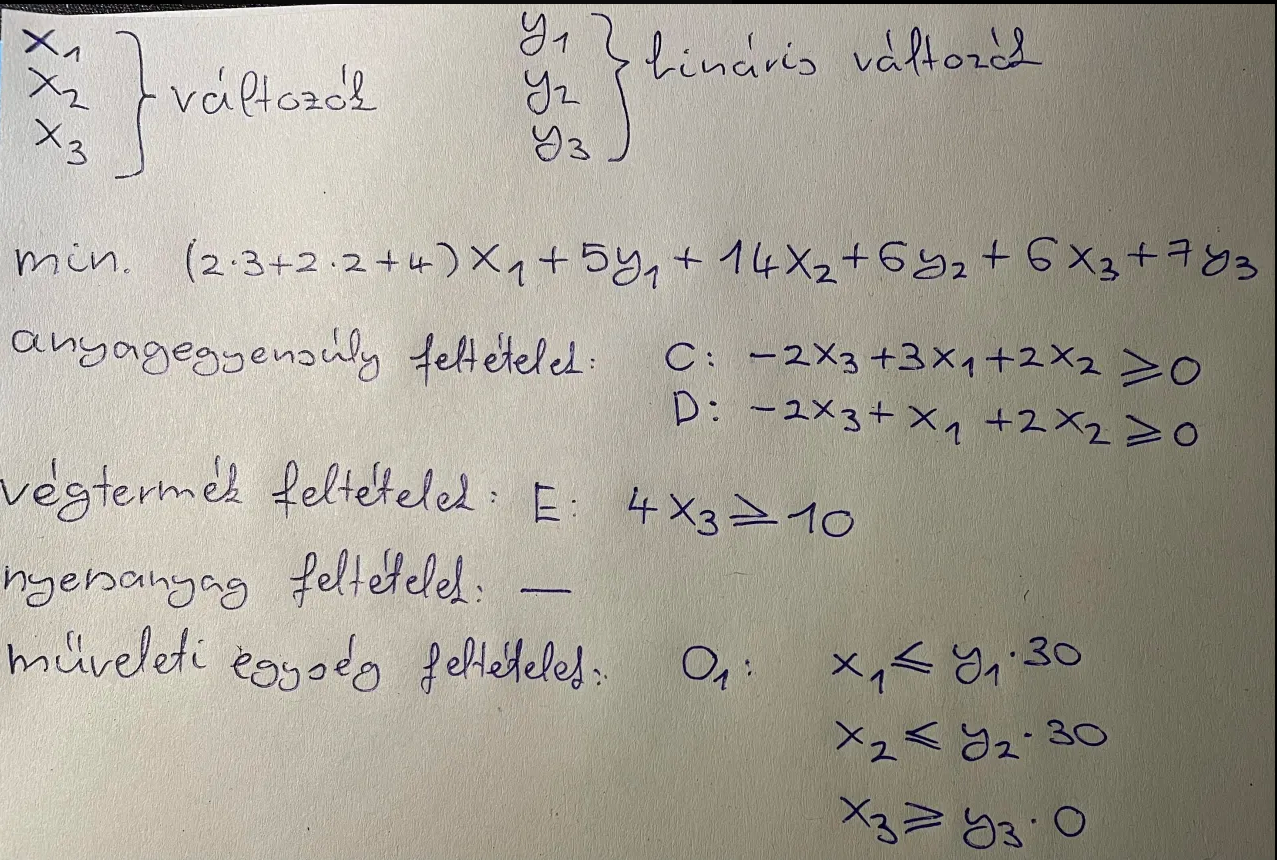 x₁ y₁
x₂ } változók y₂ } bináris változók
x₃ y₃
min. (2·3+2·2+4)x₁+5y₁+14x₂+6y₂+6x₃+7y₃
anyagegyensúly feltételek: C: -2x₃+3x₁+2x₂ ≥0
D: -2x₃+x₁+2x₂ ≥0
végtermék feltételek: E: 4x₃ ≥ 10
nyersanyag feltételek: —
műveleti egység feltételek: O₁: x₁ ≤ y₁·30
x₂ ≤ y₂·30
x₃ ≥ y₃·0